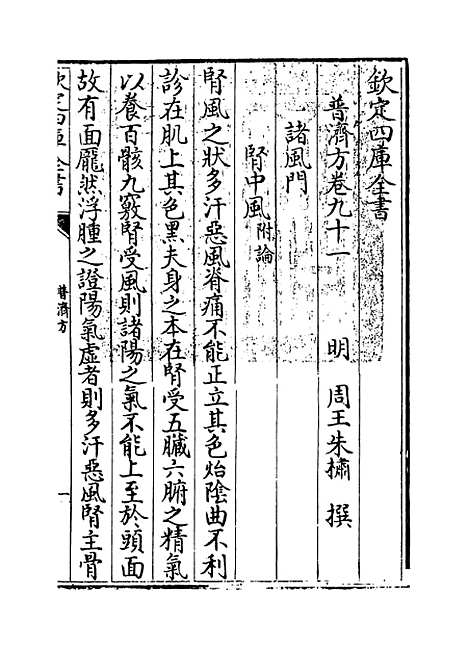 欽定四庫全書
普濟方卷九十一 明 周王朱橚 撰
諸風門
腎中風附論
腎風之狀多汗惡風脊痛不能正立其色炲隂曲不利
診在肌上其色黑夫身之本在腎受五臟六腑之精氣
以養百骸九竅腎受風則諸陽之氣不能上至於頭面
故有面龎然浮腫之證陽氣虚者則多汗惡風腎主骨
欽定四庫全書
普濟方
一